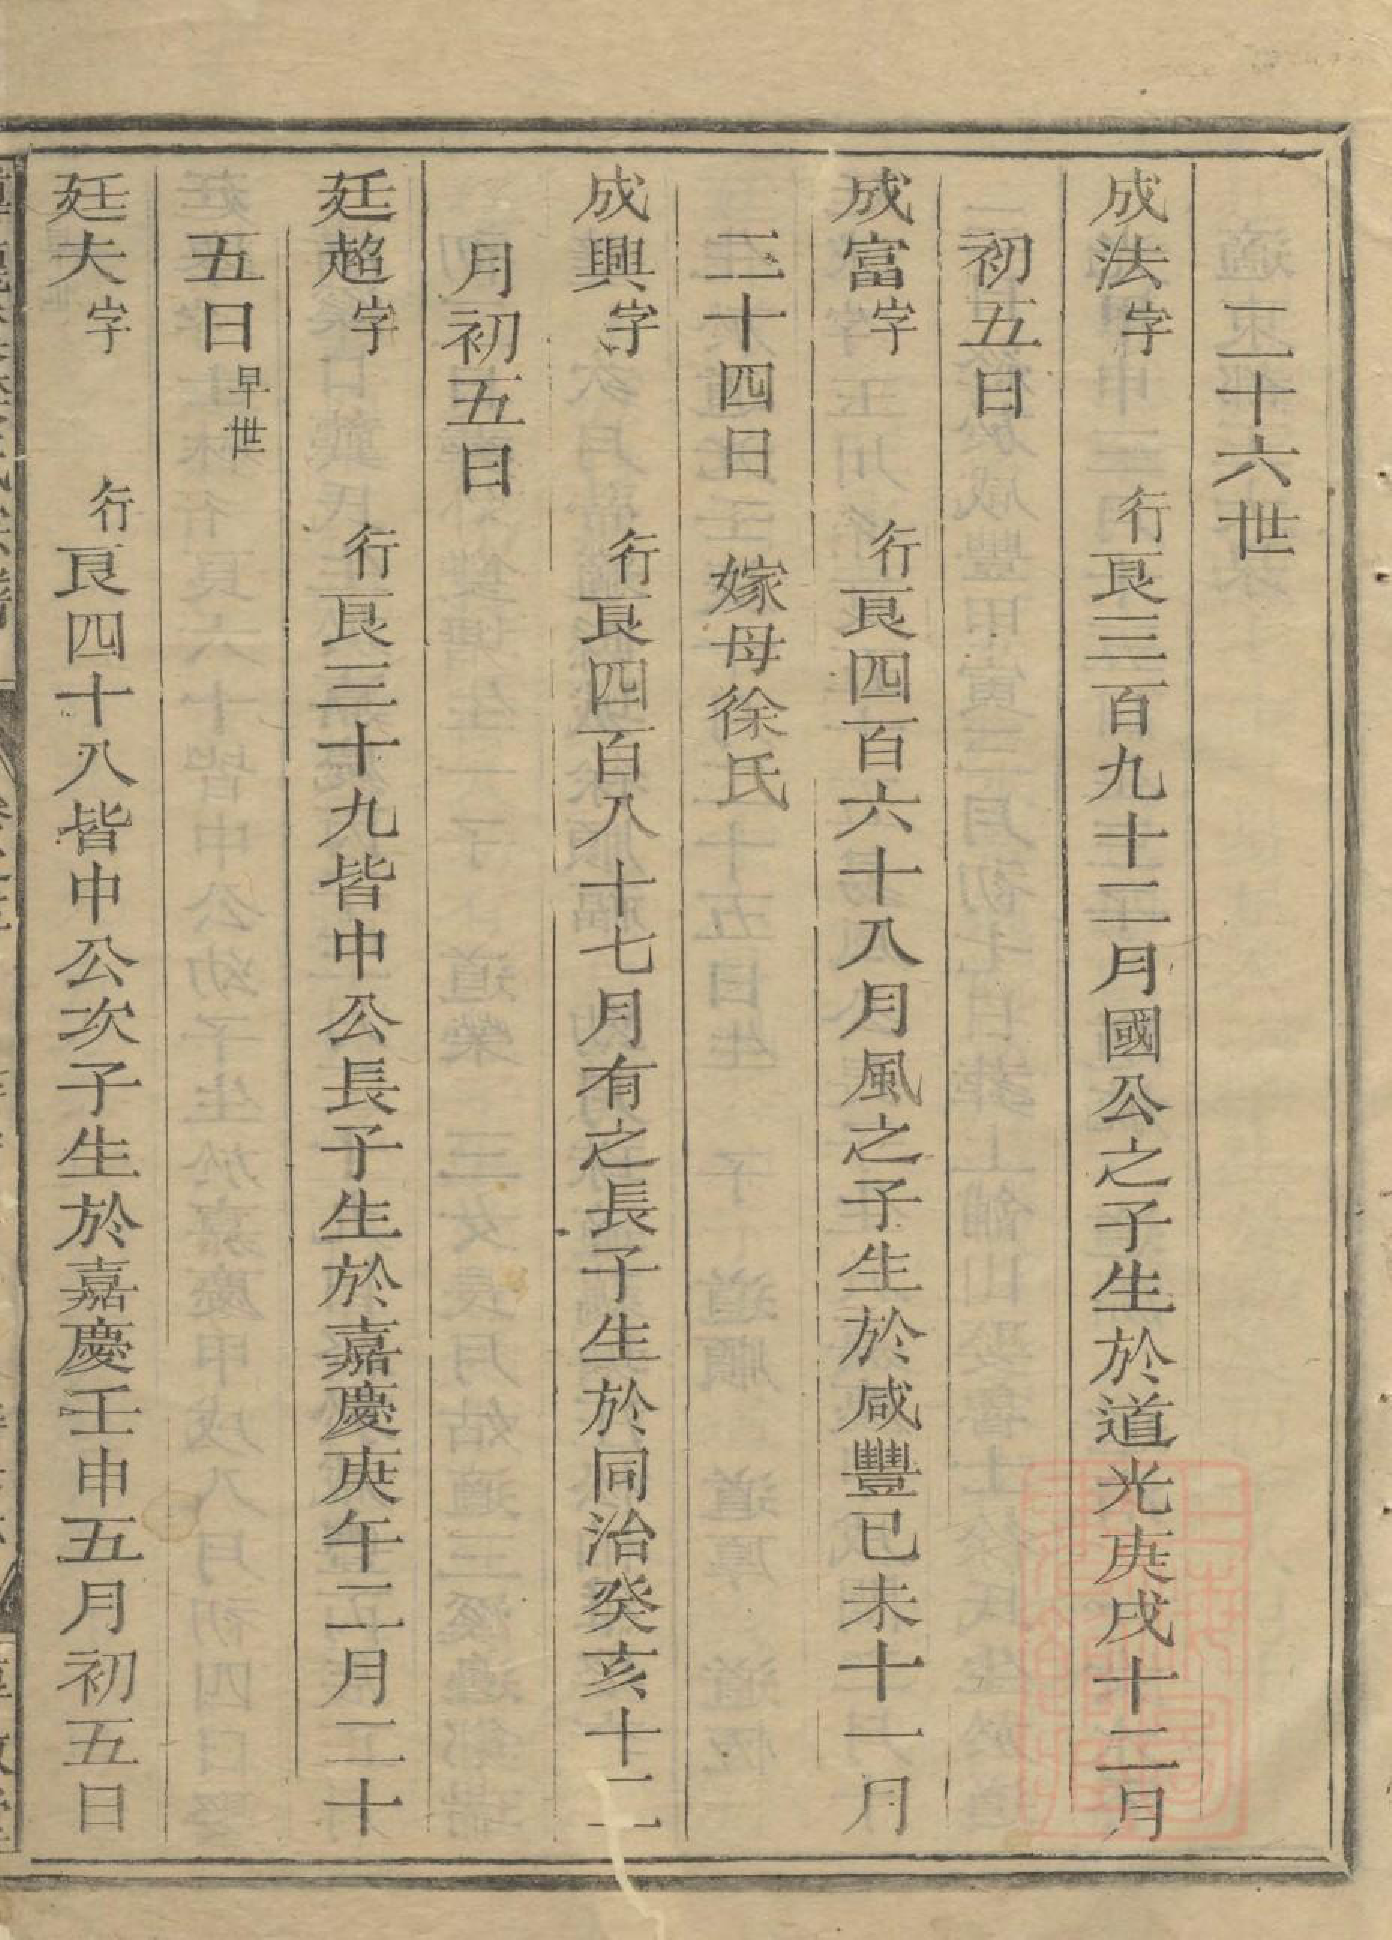 二十六世
成法字 行艮三百九十二月國公之子生於道光庚戌十二月
初五日
成富字 行艮四百六十八月風之子生於咸豐已未十一月
二十四日 嫁母徐氏
成興字 行艮四百八十七月有之長子生於同治癸亥十二
月初五日
廷趨字 行艮三十九皆中公長子生於嘉慶庚午二月二十
五日早世
廷夫字 行艮四十八皆中公次子生於嘉慶壬申五月初五日